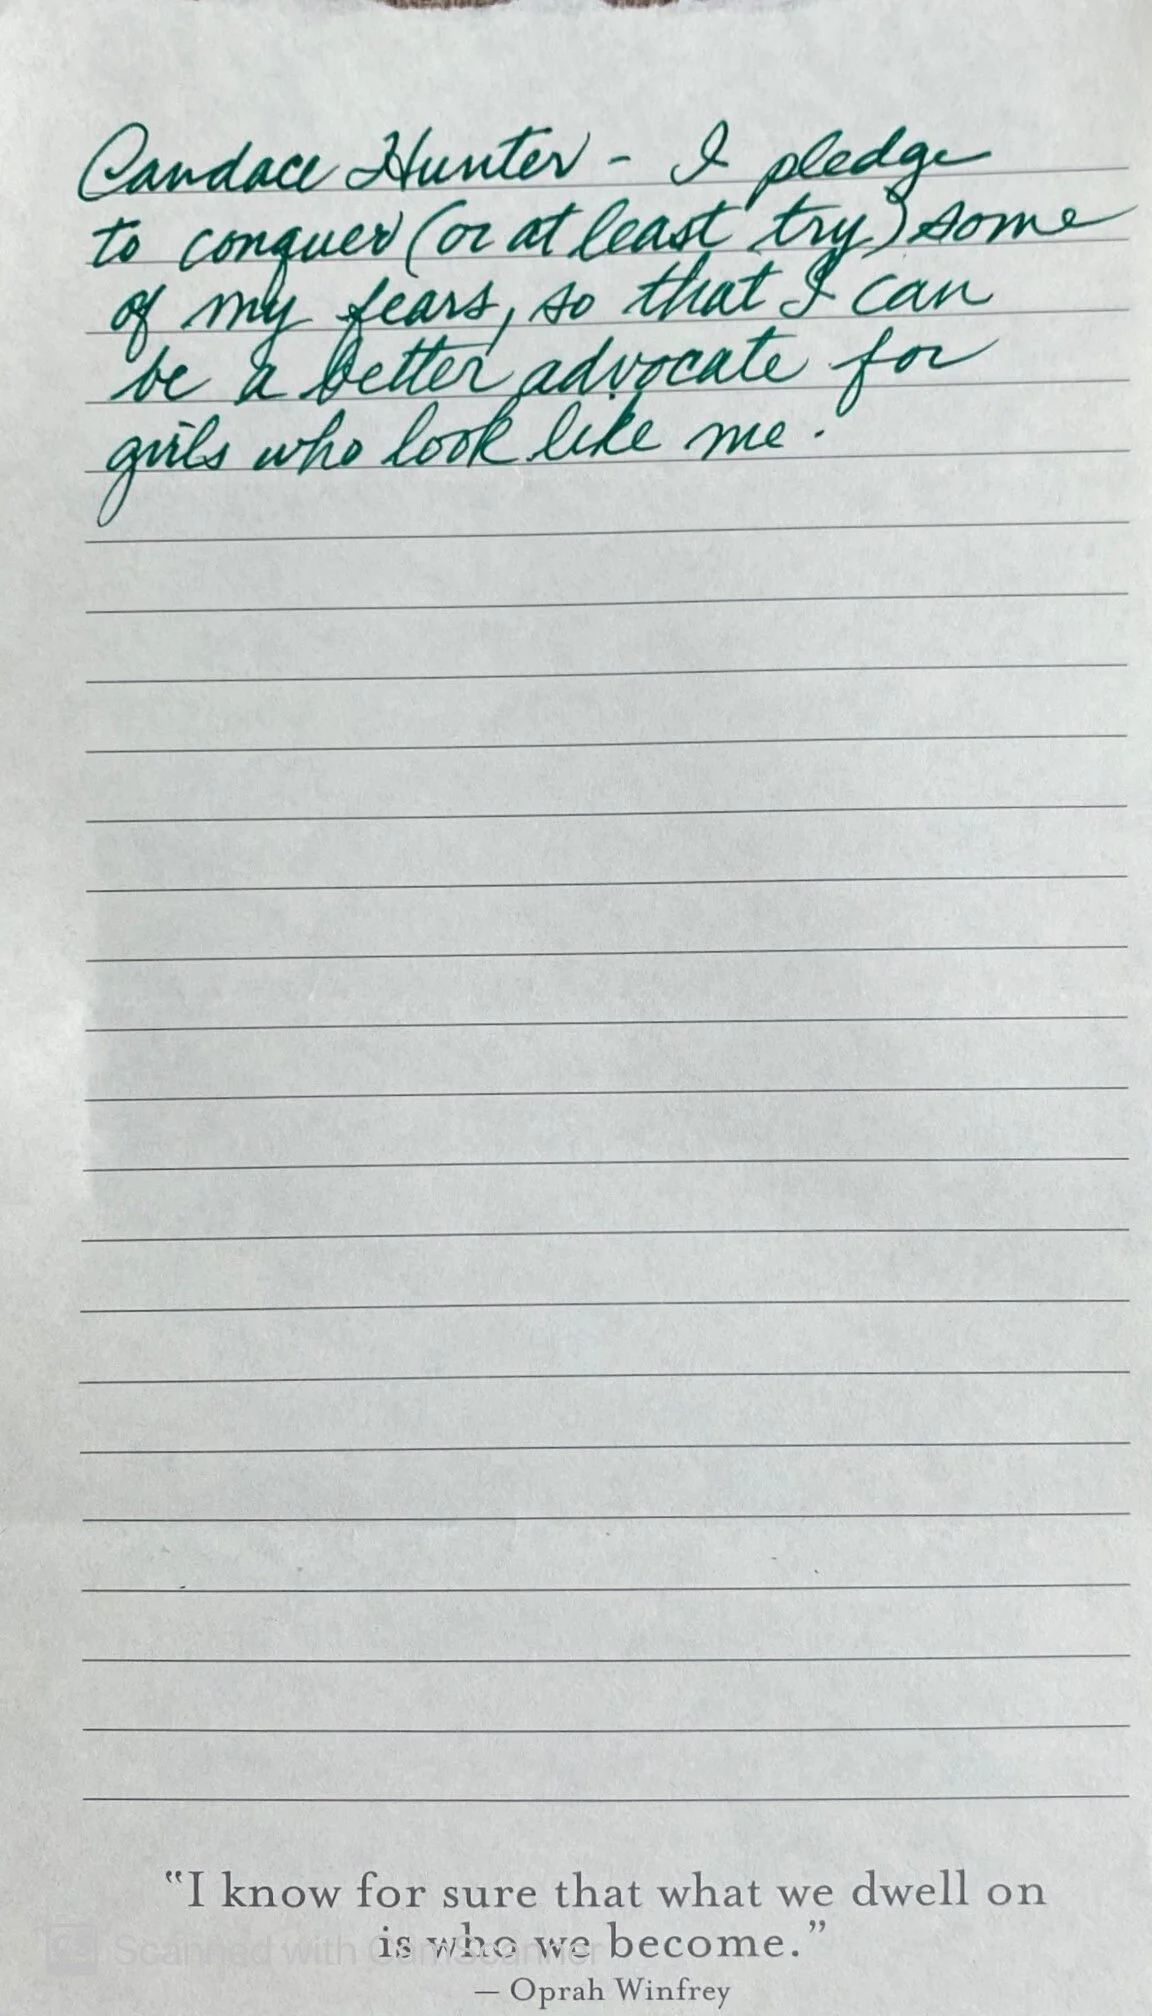 Candace Hunter - I pledge
to conquer (or at least try) some
of my fears, so that I can
be a better advocate for
girls who look like me.
"I know for sure that what we dwell on
is who we become."
— Oprah Winfrey
CS Scanned with CamScanner